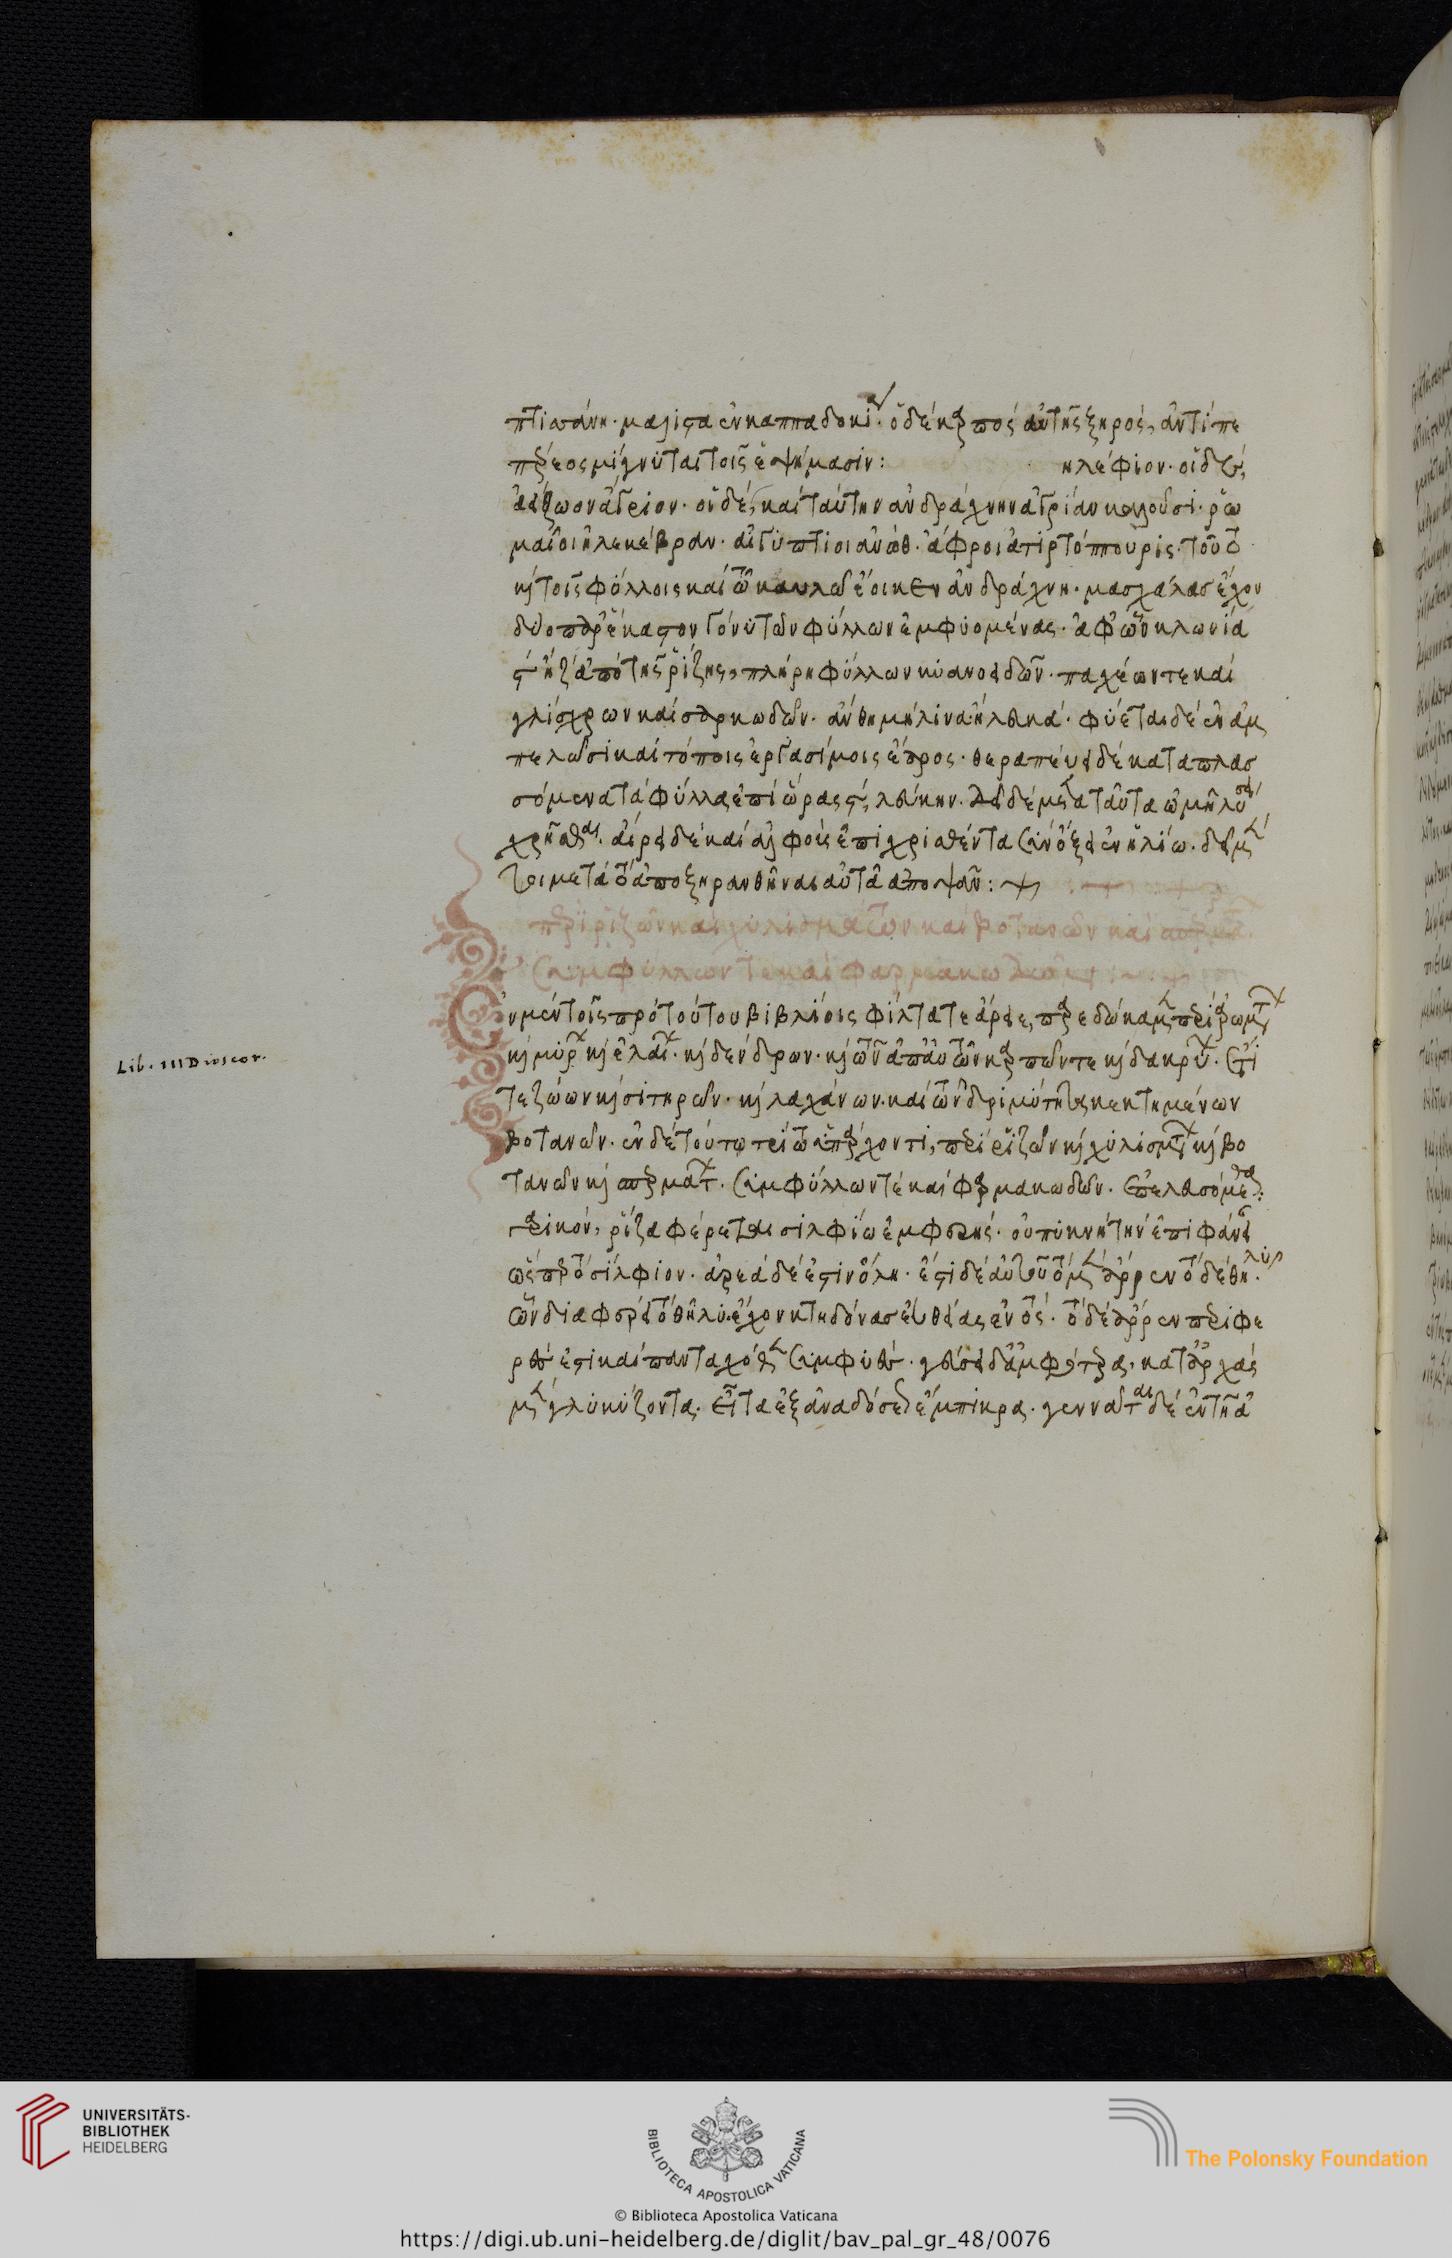 πτισάνη. μάλιστα ἐν καππαδοκία. ὁ δὲ καρπὸς αὐτῆς ξηρὸς, ἀντὶ πε
πέρεος μίγνυται τοῖς ἑψήμασιν: τηλέφιον. οἱ δὲ,
ἀείζωον ἄγριον. οἱ δὲ, καὶ ταύτην ἀνδράχνην ἀγρίαν καλοῦσι. ῥω
μαῖοι ἠλεκέβραν. αἰγύπτιοι ἀνὼθ. ἄφροι ἀτιρτόππουρις. τοῦτο
καὶ τοῖς φύλλοις καὶ τῷ καυλῷ ἔοικεν ἀνδράχνη. μασχάλας ἔχον
δύο παρ' ἕκαστον γόνυ τῶν φύλλων ἐμφυομένας. ἀφ' ὧν κλωνία
ϛ ἢ ζ ἀπὸ τῆς ῥίζης, πλήρη φύλλων κυανοειδῶν. παχέων τε καὶ
γλίσχρων καὶ σαρκωδῶν. ἄνθη μήλινα ἢ λευκά. φύεται δὲ ἐν ἀμ
πελῶσι καὶ τόποις ἐργασίμοις ἔαρος. θεραπεύει δὲ καταπλασ
σόμενα τὰ φύλλα ἐπὶ ὥρας ϛ, λεύκην. δεῖ δὲ μετὰ ταῦτα ὠμηλύσει
χρῆσθαι. αἴρει δὲ καὶ ἀλφοὺς ἐπιχρισθέντα σὺν ὄξει ἐν ἡλίω. δεῖ μέν
τοι μετὰ τὸ ἀποξηρανθῆναι αὐτὰ ἀποψᾶν:
περὶ ῥιζῶν καὶ χυλισμάτων καὶ βοτανῶν καὶ σπερμάτων
συμφύλλων τε καὶ φαρμακωδῶν
Ἐν μὲν τοῖς πρὸ τούτου βιβλίοις φίλτατε ἄρειε, παρεδώκαμεν περὶ ἀρωμάτων
καὶ μύρων καὶ ἐλαίων. καὶ δένδρων. καὶ τῶν ἀπ' αὐτῶν καρπῶν τε καὶ δακρύων. ἔτι
τε ζώων καὶ σιτηρῶν. καὶ λαχάνων. καὶ τῶν δριμύτητα κεκτημένων
βοτανῶν. ἐν δὲ τούτῳ τρίτῳ ὑπάρχοντι, περὶ ῥιζῶν καὶ χυλισμάτων καὶ βο
τανῶν καὶ σπερμάτων. συμφύλλων τε καὶ φαρμακωδῶν. ἐπελευσόμεθα:
ἀγαρικὸν, ῥίζα φέρεται σιλφίω ἐμφερής. οὐ πυκνὴ τὴν ἐπιφάνειαν
ὥσπερ τὸ σίλφιον. ἀραιὰ δὲ ἐστὶν ὅλη. ἔστι δὲ αὐτοῦ τὸ μὲν ἄρρεν τὸ δὲ θῆλυ.
ὧν διαφορεῖ τὸ θῆλυ. ἔχον κτηδόνας εὐθείας ἐντός. τὸ δὲ ἄρρεν περιφε
ρές ἐστι καὶ πανταχόθεν συμφυές. γεύσει δ' ἀμφότερα, κατ' ἀρχὰς
μὲν γλυκύζοντα. εἶτα ἐξ ἀναδόσεως ἔμπικρα. γεννᾶται δὲ ἐν τῇ ἀ
Lib. III Dioscor.
UNIVERSITÄTS-
BIBLIOTHEK
HEIDELBERG
BIBLIOTECA APOSTOLICA VATICANA
The Polonsky Foundation
© Biblioteca Apostolica Vaticana
https://digi.ub.uni-heidelberg.de/diglit/bav_pal_gr_48/0076